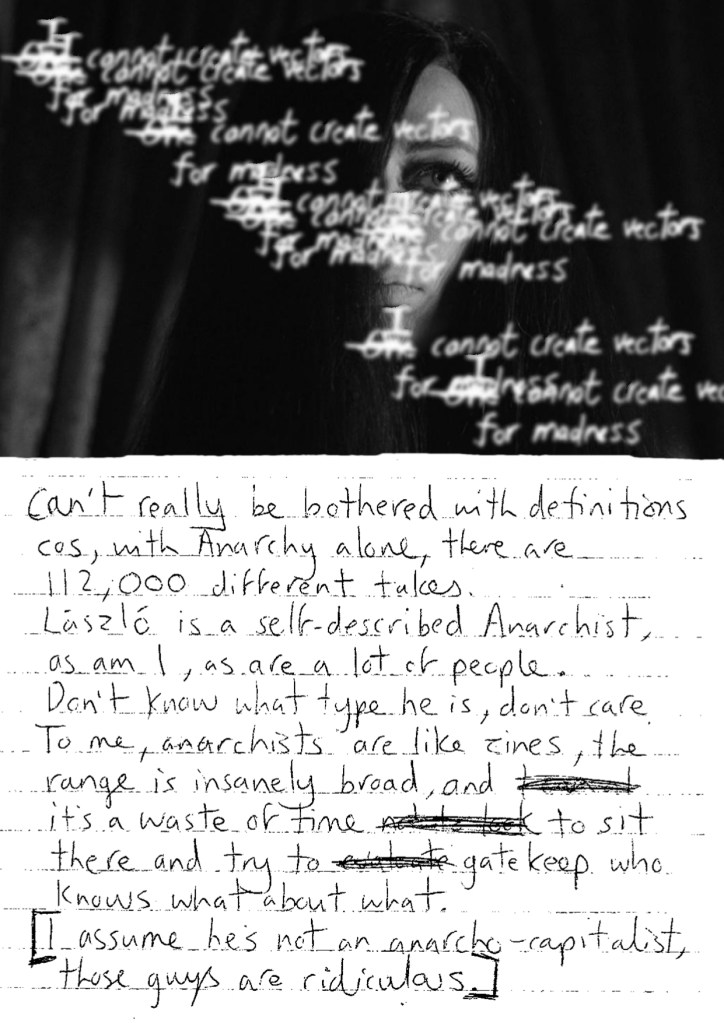 I
One cannot create vectors
One cannot create vectors
for madness
for madness
I
One cannot create vectors
for madness
I
One cannot create vectors
One cannot create vectors
One cannot create vectors
for madness
for madness
for madness
I
One cannot create vectors
for madness
I
One cannot create vec
for madness
Can't really be bothered with definitions
cos, with Anarchy alone, there are
112,000 different takes.
László is a self-described Anarchist,
as am I, as are a lot of people.
Don't know what type he is, don't care.
To me, anarchists are like zines, the
range is insanely broad, and
it's a waste of time to sit
there and try to evaluate gatekeep who
knows what about what.
[I assume he's not an anarcho-capitalist,
those guys are ridiculous.]